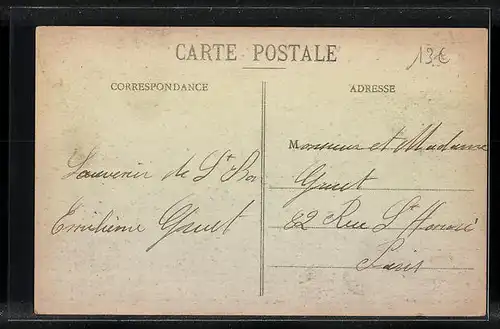 CARTE POSTALE
13€
CORRESPONDANCE
ADRESSE
Souvenir de St
Monsieur et Madame
82 Rue St Honoré
Paris